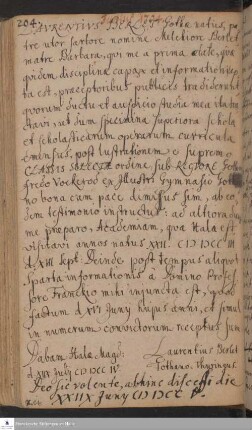 204.
LAURENTIUS BERLET Gotha natus, pa
tre utor sartore nomine Melchiore Berlet
matre Barbara, qui me a prima ætate, qua
quidem disciplinæ capax et informationis cep
ta est, præceptoribus publicis tradiderunt
quorum ductu et auspicio studia mea ita trac
tavi ut dum specimina superiora schola
et scholasticarum operarum curricula
emensus, post lustrationem e supremo
CLASSIS SELECTÆ ordine, sub REGIORE Gotho
fredo Vockerod ex Illustri Gymnasio Gotha
no bona cum pace dimissus sim, ab eo
dem testimonio instructus: ad altiora dum
me præparo, Academiam, quæ Hala est
visitavi annos natus XXII. CIƆ IƆCC III
d. XIII sept. Deinde post tempus aliquod
Sparta informationis a Domino Profes
sore Franckio mihi injuncta est, quod
factum d. XVI Juny hujus anni, et simul
in numerum convictorum receptus sum
Dabam Hala Magd.
Laurentius Berlet
d. XIX Juny CIƆ IƆCC IV
Gothanus Thuringus.
Deo sic volente, abhinc discessi die
XXIIX Juny CIƆ IƆCC